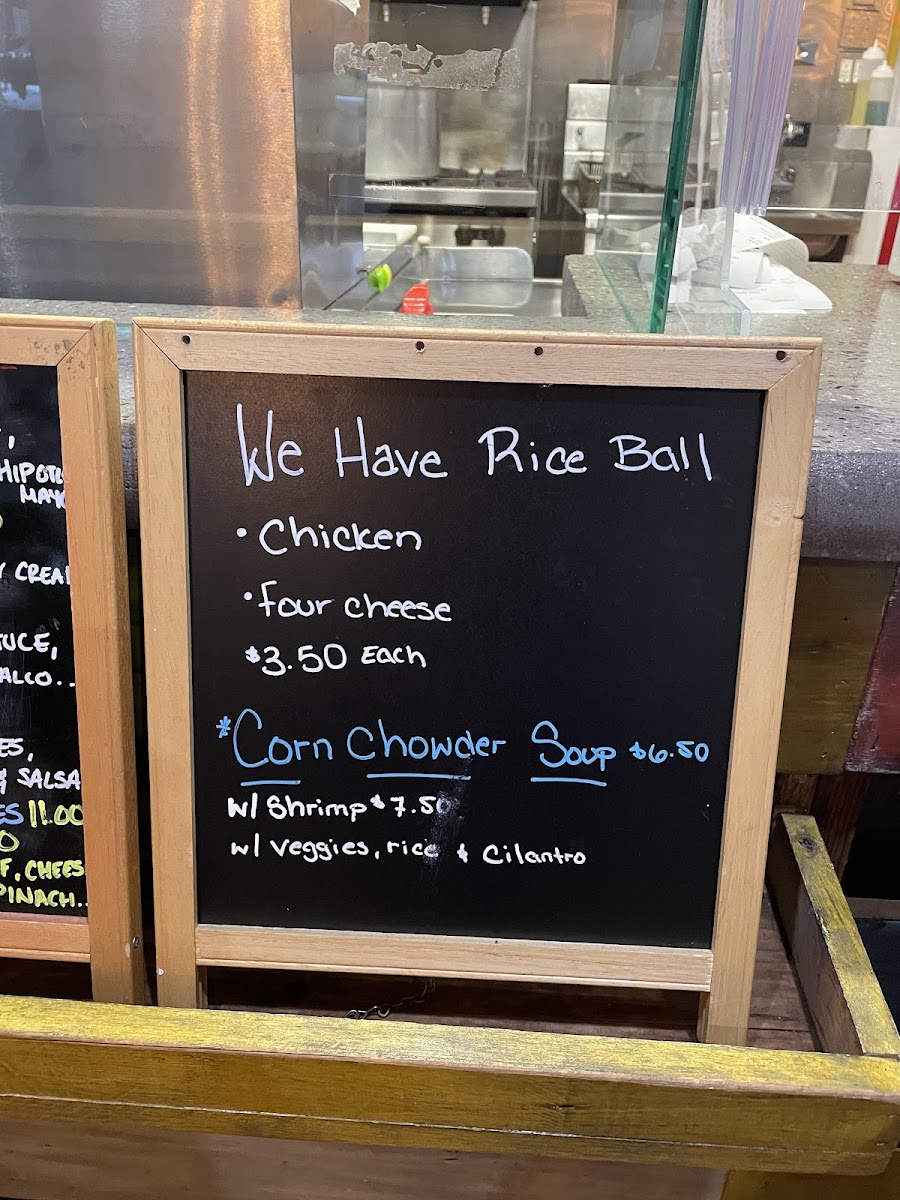 We Have Rice Ball
• Chicken
• four cheese
$3.50 Each
*Corn Chowder Soup $6.50
w/ Shrimp $7.50
w/ veggies, rice & Cilantro
MAYO
TUCE,
& SALSA
11.00
F, CHEES
PINACH..